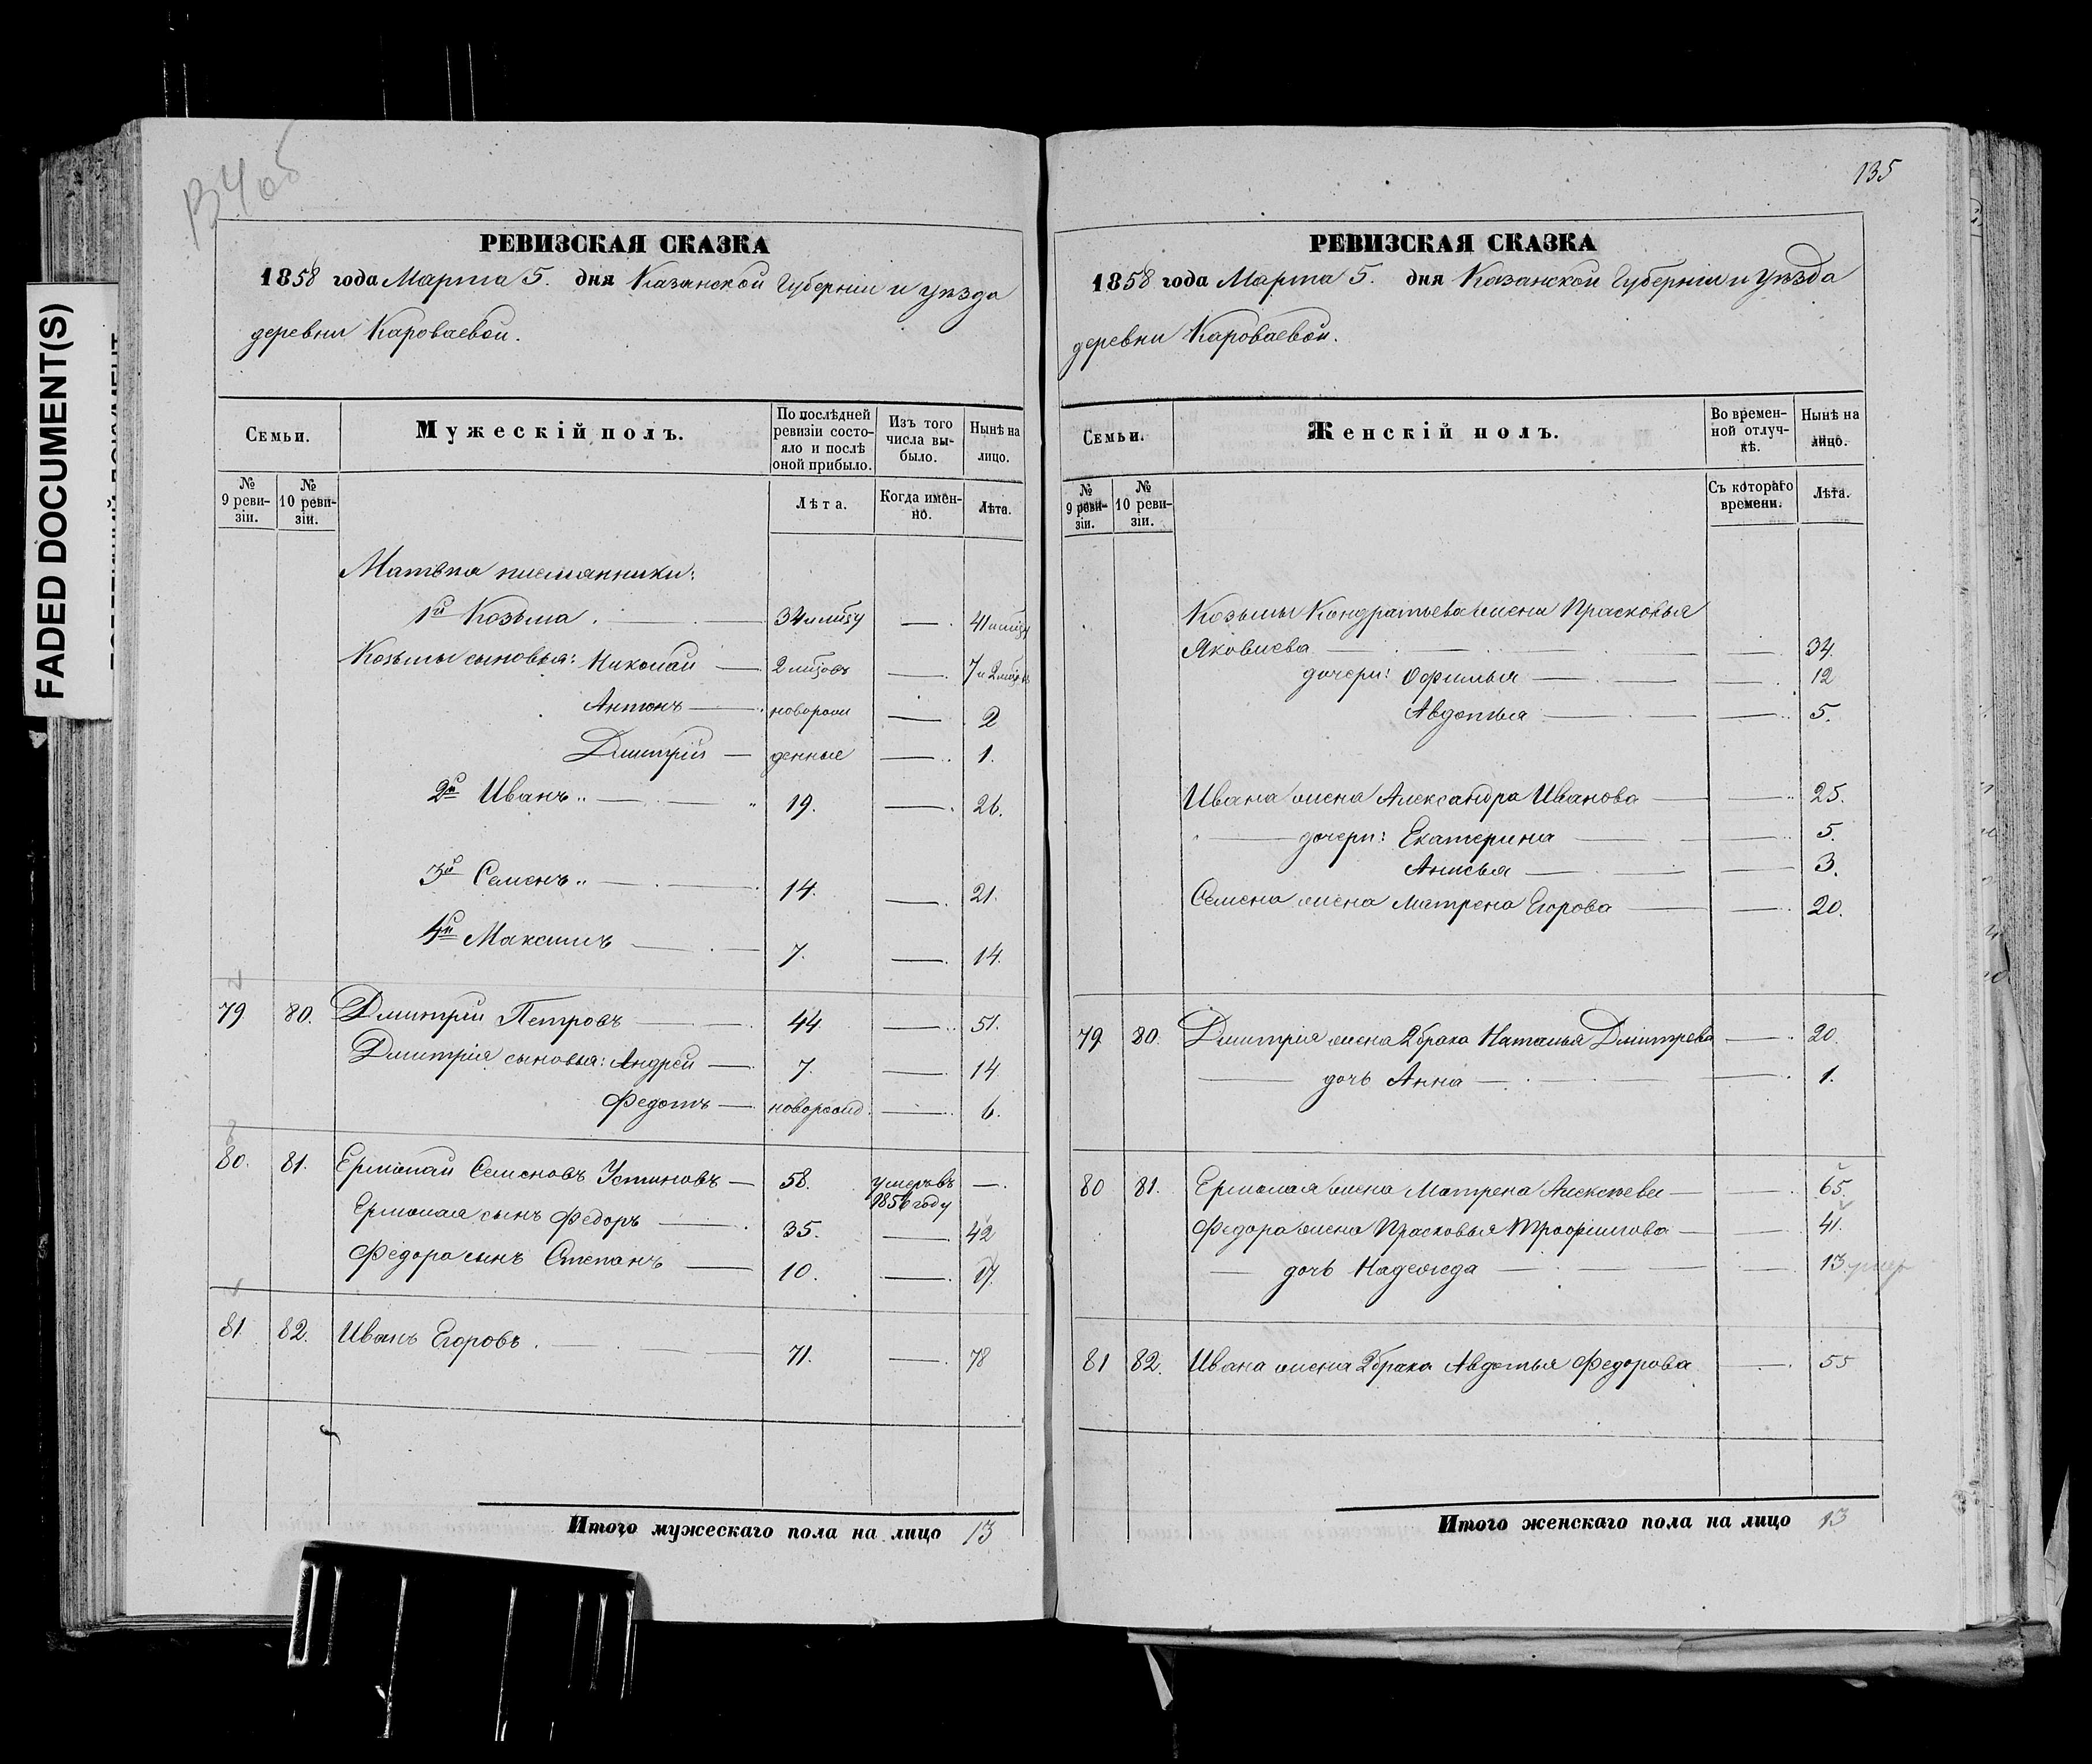 FADED DOCUMENT(S)
134 об
РЕВИЗСКАЯ СКАЗКА
1858 года Марта 5. дня Казанской Губерніи и уѣзда
деревни Кароваевой.
Семьи.
Мужескій полъ.
По послѣдней ревизіи состояло и послѣ оной прибыло.
Изъ того числа выбыло.
Нынѣ на лицо.
№ 9 ревизіи.
№ 10 ревизіи.
Лѣта.
Когда именно.
Лѣта.
Матвѣя племянники:
1й Козьма 34 41
Козьмы сыновья: Николай — 7
Антонъ — новорож — 2
Дмитрій — денные — 1.
2й Иванъ — 19. — 26.
3й Семенъ — 14. — 21.
4й Максимъ — 7. — 14.
79. 80. Дмитрій Петровъ — 44 — 51.
Дмитрія сыновья: Андрей — 7. — 14
Федотъ — новорожд. — 6.
80. 81. Ермолай Семеновъ Устиновъ — 58. умеръ въ 1856 году —
Ермолая сынъ Федоръ — 35. — 42
Федора сынъ Степанъ — 10. — 17.
81. 82. Иванъ Егоровъ. — 71. — 78
Итого мужескаго пола на лицо 13
135
РЕВИЗСКАЯ СКАЗКА
1858 года Марта 5. дня Казанской Губерніи и уѣзда
деревни Кароваевой.
Семьи.
Женскій полъ.
Во временной отлучкѣ.
Нынѣ на лицо.
№ 9 ревизіи.
№ 10 ревизіи.
Съ котораго времени.
Лѣта.
Козьмы Кондратьева жена Прасковья
Яковлева — 34.
дочери: Офимья — 12
Авдотья — 5.
Ивана жена Александра Иванова — 25.
дочери: Екатерина — 5.
Анисья — 3.
Семена жена Матрена Егорова — 20.
79 80. Дмитрія жена 2 брака Наталья Дмитрева — 20.
дочь Анна — 1.
80 81. Ермолая жена Матрена Алексѣева — 65.
Федора жена Прасковья Трофимова — 41.
дочь Надежда — 13.
81 82. Ивана жена 2 брака Авдотья Федорова — 55
Итого женскаго пола на лицо 13